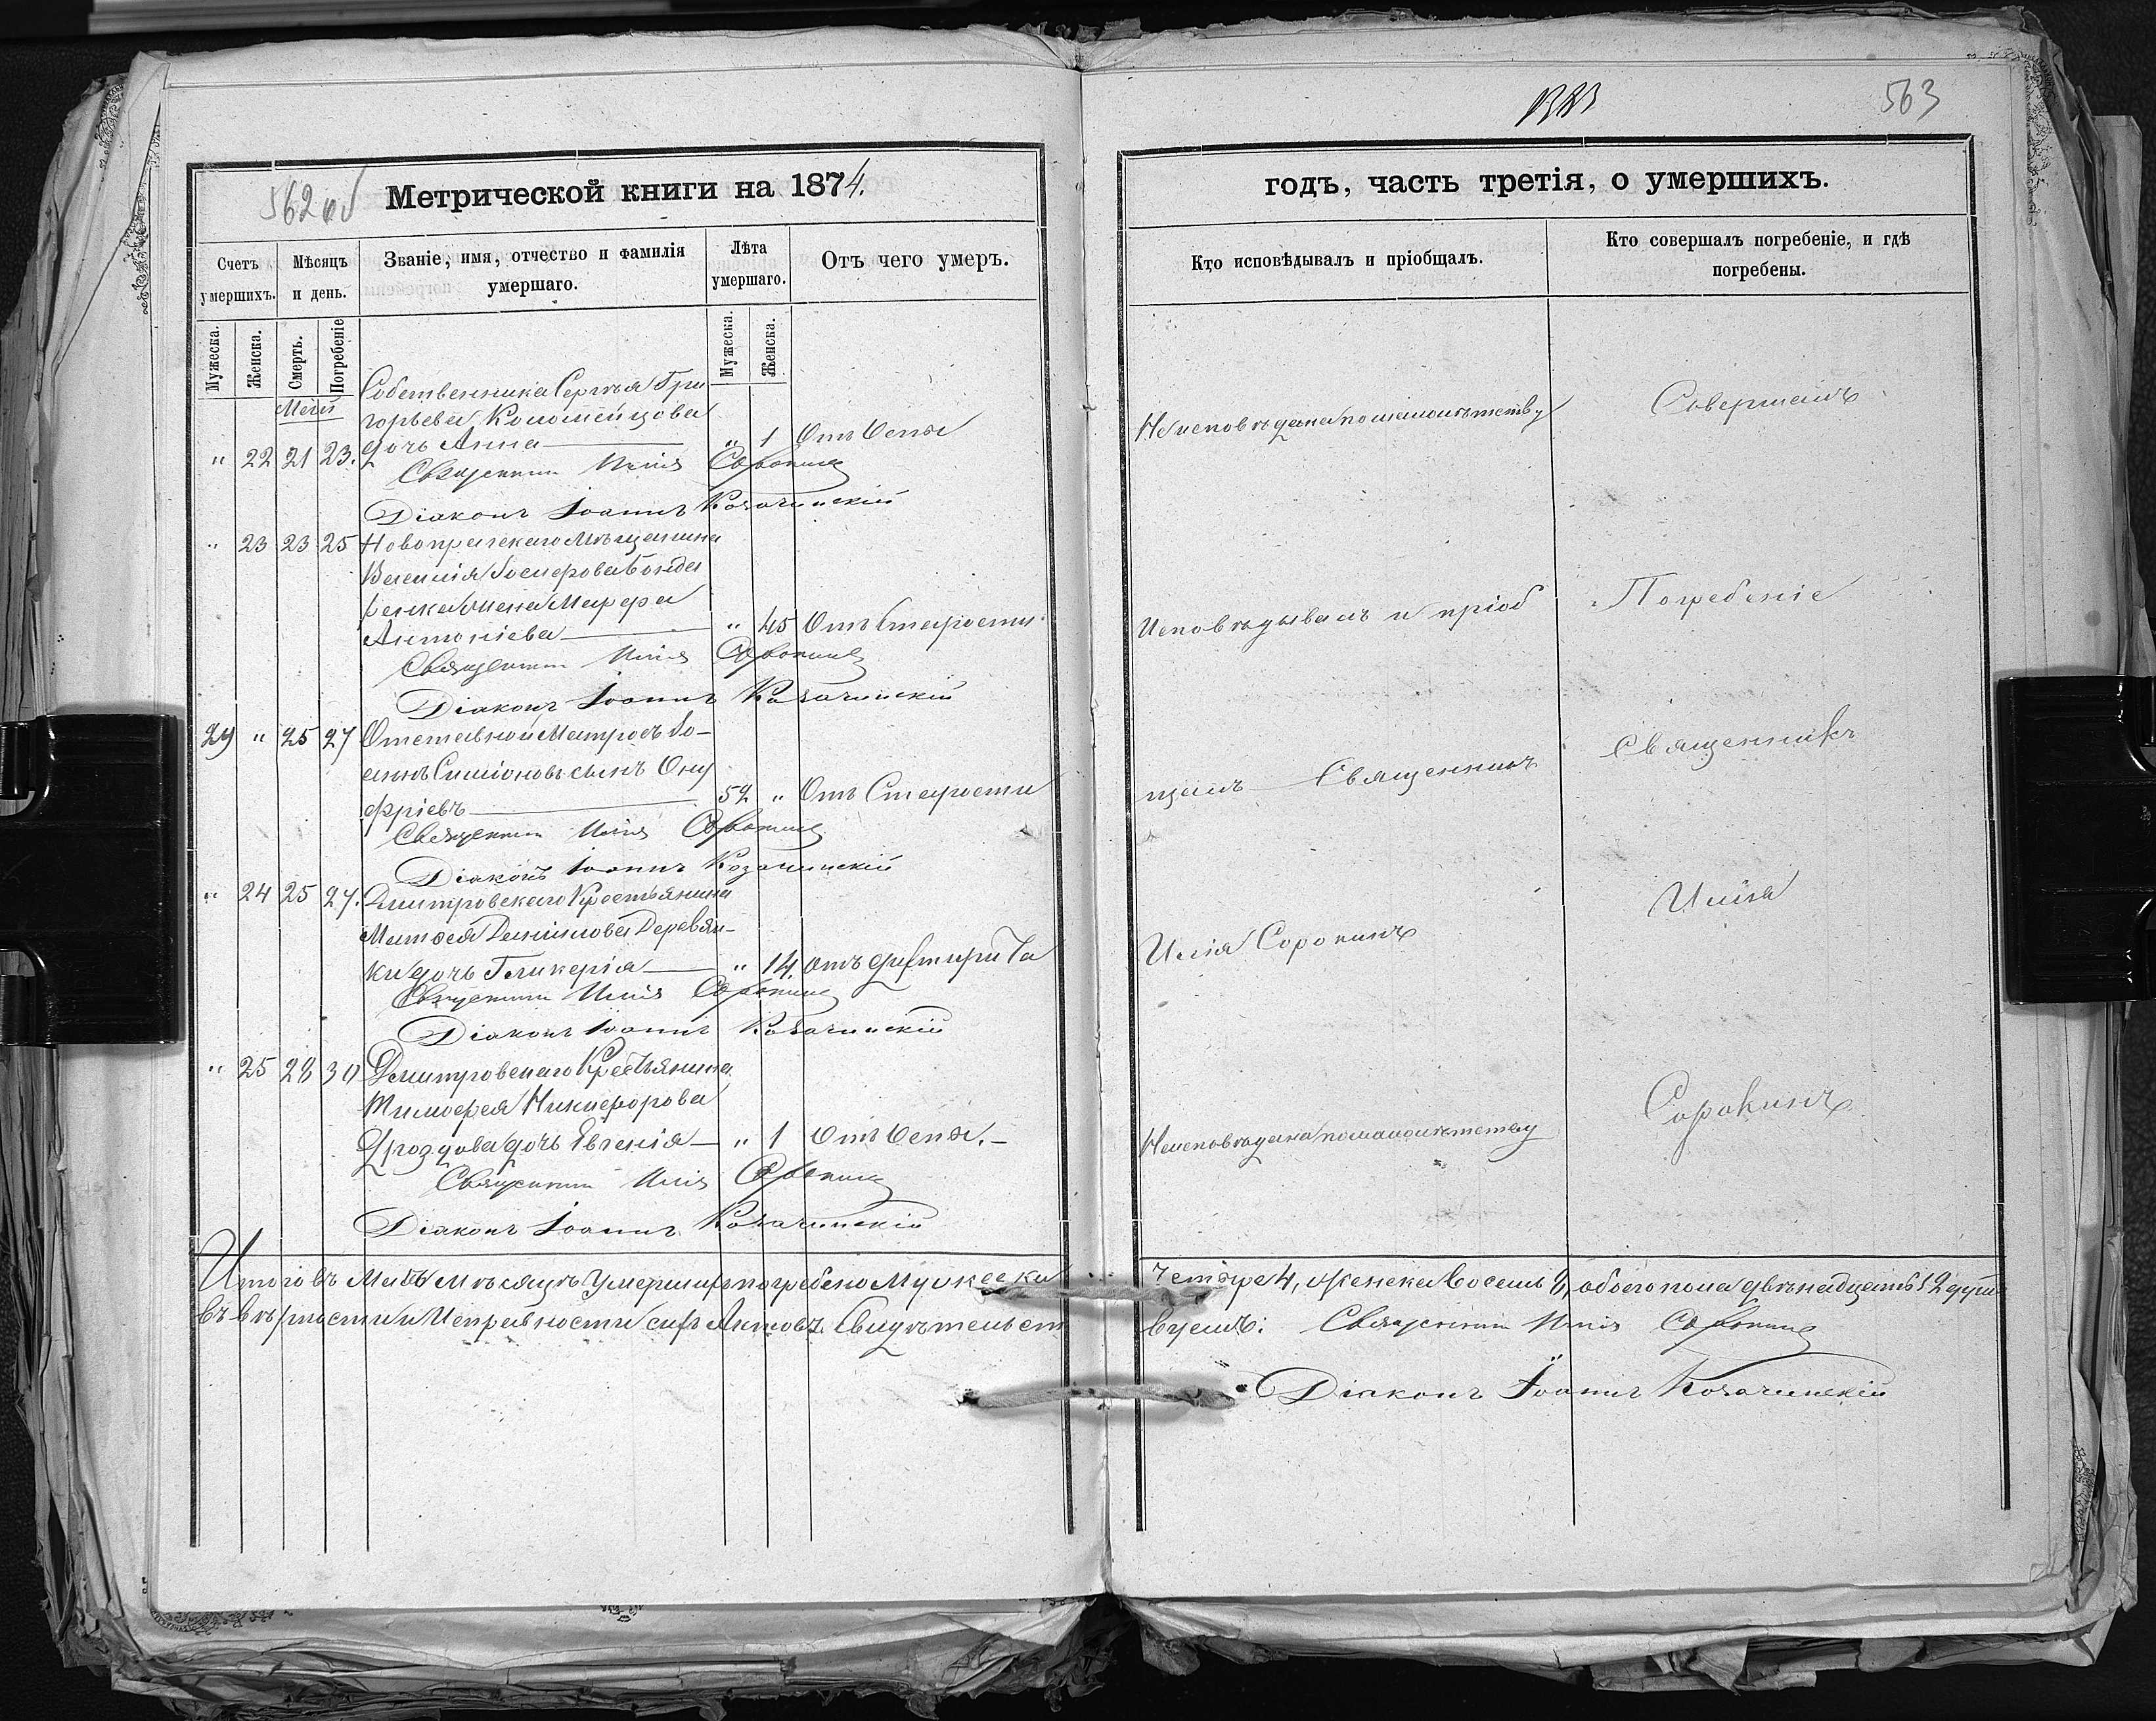 562 об
Метрической книги на 1874.
Счетъ умершихъ.
Мѣсяцъ и день.
Званіе, имя, отчество и фамилія умершаго.
Лѣта умершаго.
Отъ чего умеръ.
Мужеска.
Женска.
Смерть.
Погребеніе
Мужеска.
Женска.
Май
Собственника Сергѣя Гри
горьева Коломейцова
" 22 21 23. дочь Анна " 1 Отъ Оспы
Священникъ Илія Сорокинъ
Діаконъ Іоаннъ Козачинскій
" 23 23 25 Новопражскаго Мѣщанина
Василія Іосифова Бонда
ренка жена Марфа
Антоніева " 45 Отъ Старости.
Священникъ Илія Сорокинъ
Діаконъ Іоаннъ Козачинскій
29 " 25 27 Отставной Матросъ Іо-
аннъ Симіоновъ сынъ Ону
фріевъ 52 " Отъ Старости
Священникъ Илія Сорокинъ
Діаконъ Іоаннъ Козачинскій
" 24 25 27. Дмитровскаго Крестьянина
Матѳея Даніилова Деревян-
ки дочь Гликерія " 14. отъ дифтерита
Священникъ Илія Сорокинъ
Діаконъ Іоаннъ Козачинскій
" 25 28 30 Дмитровскаго Крестьянина
Тимофея Никифорова
Дроздова дочь Евгенія " 1 Отъ Оспы.
Священникъ Илія Сорокинъ
Діаконъ Іоаннъ Козачинскій
Итого въ Маѣ Мѣсяцѣ Умершихъ погребено Мужеска
въ вѣрности и Исправности сихъ Актовъ Свидѣтельст
563
годъ, часть третія, о умершихъ.
Кто исповѣдывалъ и пріобщалъ.
Кто совершалъ погребеніе, и гдѣ погребены.
Не исповѣдана по малолѣтству
Совершалъ
Исповѣдывалъ и пріоб
Погребеніе
щалъ Священникъ
Священникъ
Илія Сорокинъ
Илія
Не исповѣдана по малолѣтству
Сорокинъ
четыре 4, женска восемь 8, обоего пола двѣнадцать 12 душъ
вуемъ: Священникъ Илія Сорокинъ
Діаконъ Іоаннъ Козачинскій